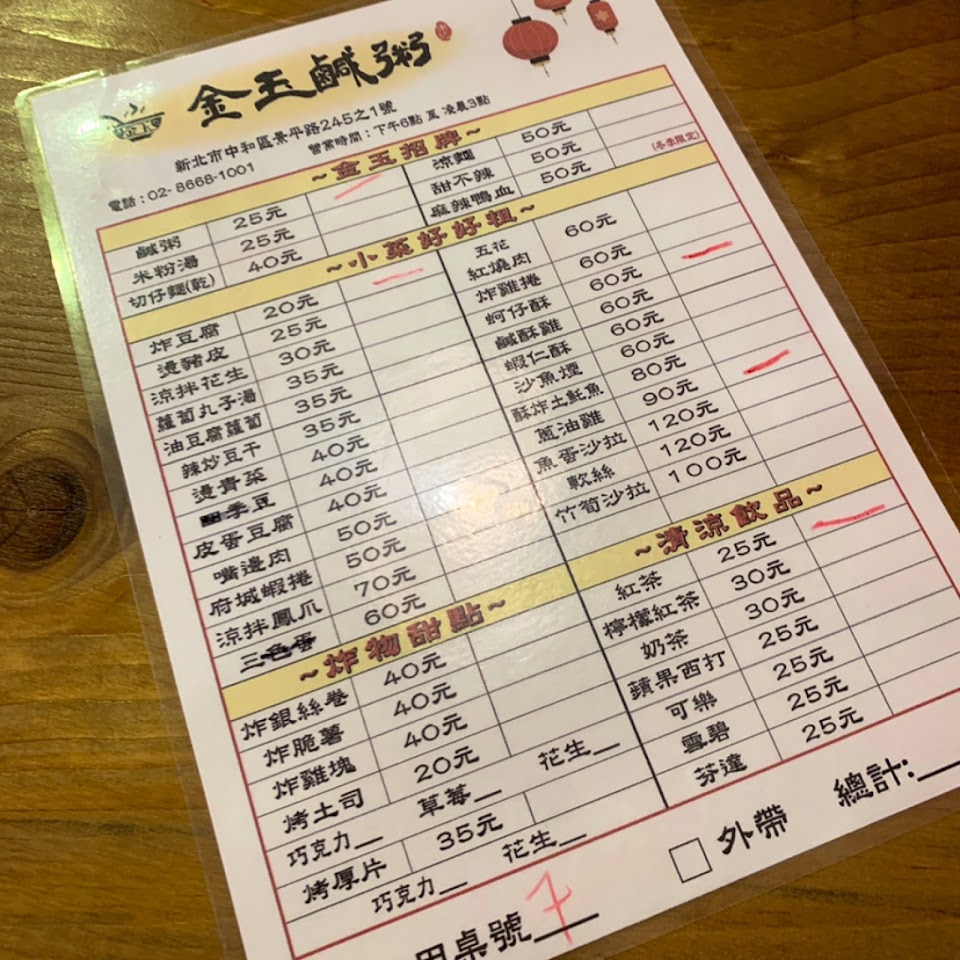 金玉鹹粥
新北市中和區景平路245之1號
電話：02- 8668-1001 營業時間：下午6點 至 凌晨3點
~金玉招牌~
鹹粥 25元
米粉湯 25元
切仔麵(乾) 40元
涼麵 50元
甜不辣 50元
麻辣鴨血 50元 (冬季限定)
~小菜好好粗~
炸豆腐 20元
燙豬皮 25元
涼拌花生 30元
蘿蔔丸子湯 35元
油豆腐蘿蔔 35元
辣炒豆干 35元
燙青菜 40元
四季豆 40元
皮蛋豆腐 40元
嘴邊肉 50元
府城蝦捲 50元
涼拌鳳爪 70元
三色蛋 60元
五花
紅燒肉 60元
炸雞捲 60元
蚵仔酥 60元
鹹酥雞 60元
蝦仁酥 60元
沙魚煙 60元
酥炸土魠魚 80元
蔥油雞 90元
魚蛋沙拉 120元
軟絲 120元
竹筍沙拉 100元
~炸物甜點~
炸銀絲卷 40元
炸脆薯 40元
炸雞塊 40元
烤土司 20元
巧克力__ 草莓__ 花生__
烤厚片 35元
巧克力__ 花生__
~清涼飲品~
紅茶 25元
檸檬紅茶 30元
奶茶 30元
蘋果西打 25元
可樂 25元
雪碧 25元
芬達 25元
□外帶 總計:__
用桌號 7